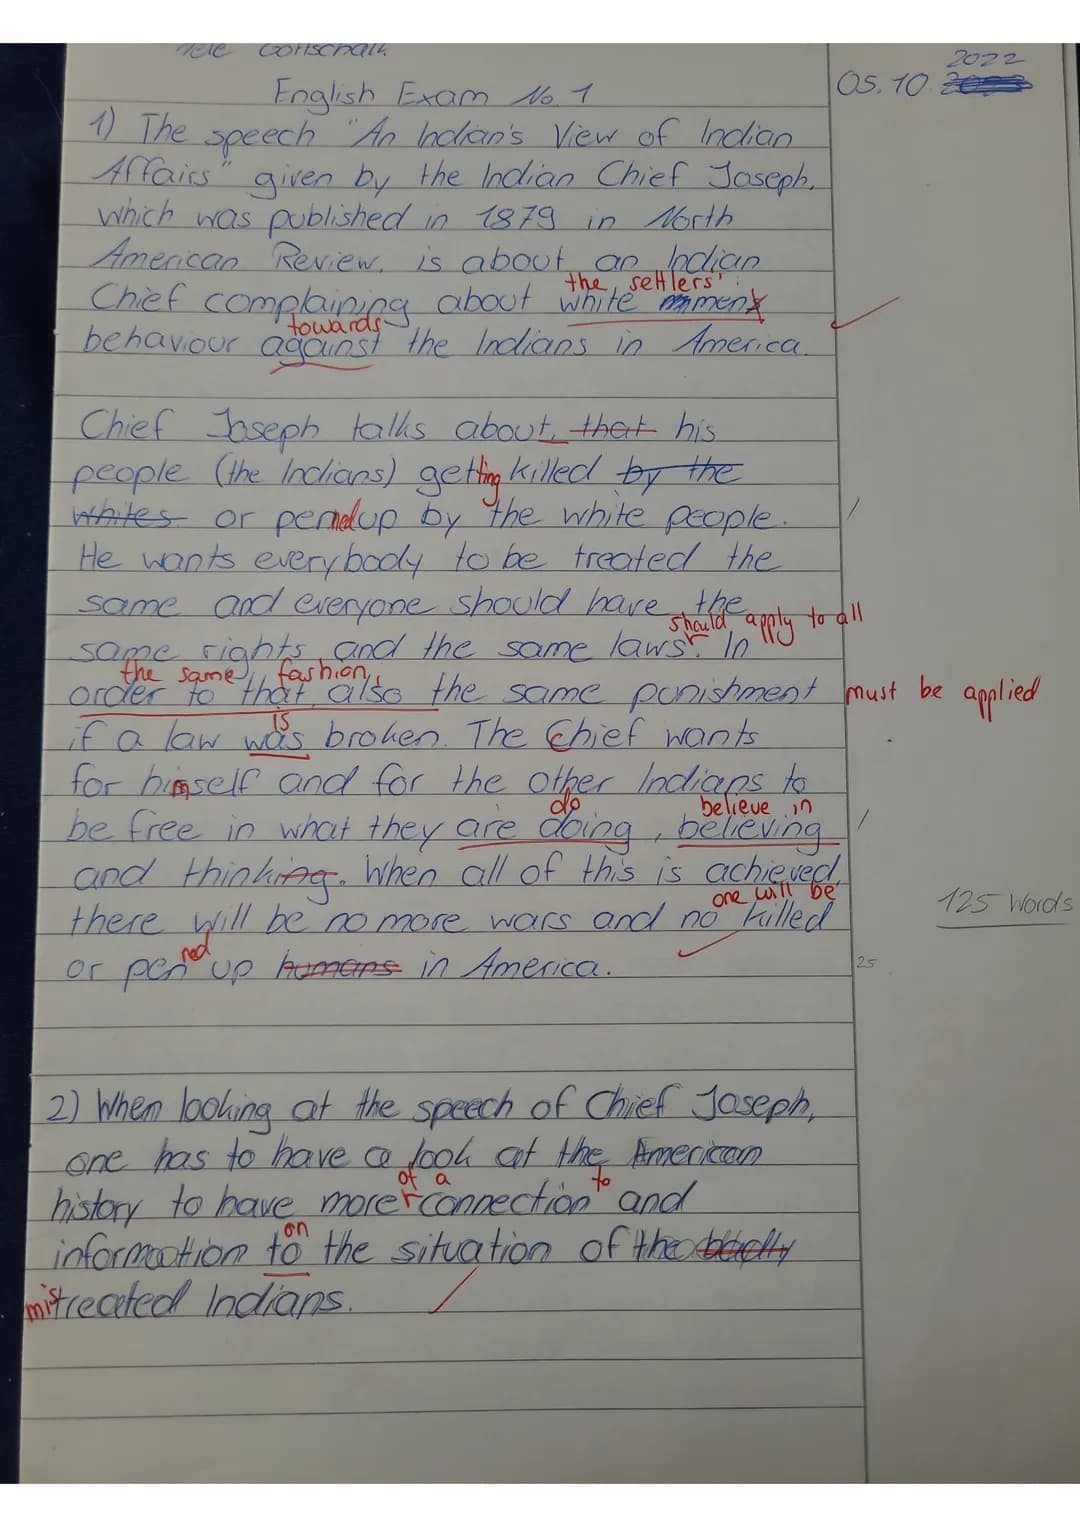 English Exam No. 1
2022
05.10.
1) The speech "An Indian's View of Indian
Affairs" given by the Indian Chief Joseph,
which was published in 1879 in North
American Review, is about an Indian
the settlers'
Chief complaining about white
towards
behaviour against the Indians in America.
Chief Joseph talks about, that his
people (the Indians) getting killed by the
whites or penned up by the white people.
He wants everybody to be treated the
same and everyone should have the
should apply to all
same rights and the same laws. In
the same fashion,
order to that, also the same punishment must be applied
is
if a law was broken. The Chief wants
for himself and for the other Indians to
do believe in
be free in what they are doing, believing
and thinking. When all of this is achieved,
one will be
there will be no more wars and no killed
125 Words
ned
or pen up humans in America.
25
2) When looking at the speech of Chief Joseph,
one has to have a look at the American
of a to
history to have more connection and
on
information to the situation of the badly
mistreated Indians.